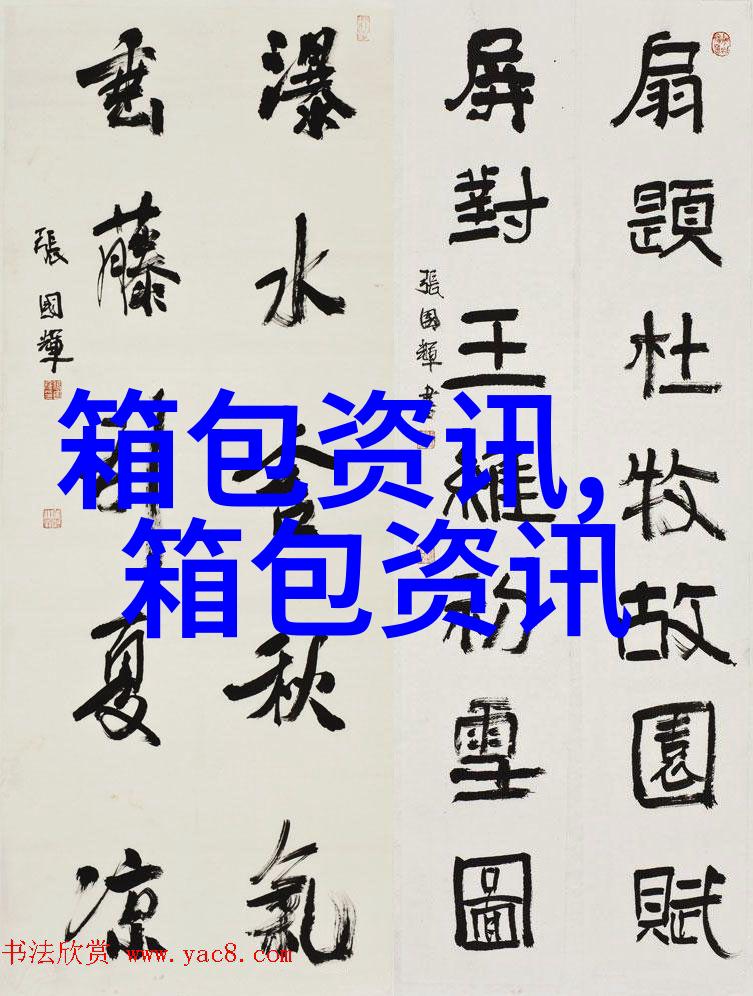 扇題杜牧故園賦
屏對王維初雪圖
張國輝書
瀑水含秋氣
垂藤夏凉
張國輝
箱包资讯,
箱包资讯
书法欣赏 www.yac8.com